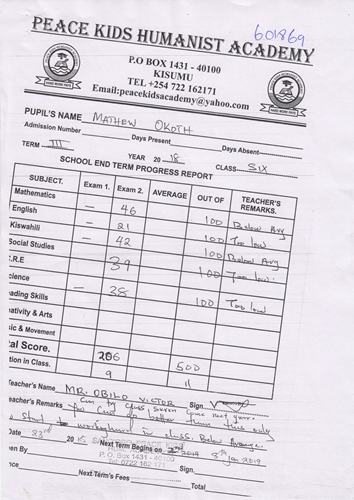 601869
PEACE KIDS HUMANIST ACADEMY
P.O BOX 1431 - 40100
KISUMU
TEL +254 722 162171
Email:peacekidsacademy@yahoo.com
PUPIL'S NAME MATHEW OKOTH
Admission Number Days Present Days Absent
TERM III YEAR 2018 CLASS SIX
SCHOOL END TERM PROGRESS REPORT
SUBJECT. Exam 1. Exam 2. AVERAGE OUT OF TEACHER'S REMARKS.
Mathematics – 46 100 Below Avg
English – 21 100 Too low
Kiswahili – 42 100 Below Avg
Social Studies 39 100 Too low
.R.E
cience – 38 100 Too low
eading Skills
eativity & Arts
sic & Movement
tal Score. 206 500
ition in Class. 9 11
Teacher's Name MR. OBILO VICTOR Sign
eacher's Remarks can do better than this only
start in class. Below Average.
Date 23rd Next Term Begins on Jan 2019
P.O. Box 1431 - 40100
Tel: 0722 162 171
en By Sign
nce Next Term's Fees Total